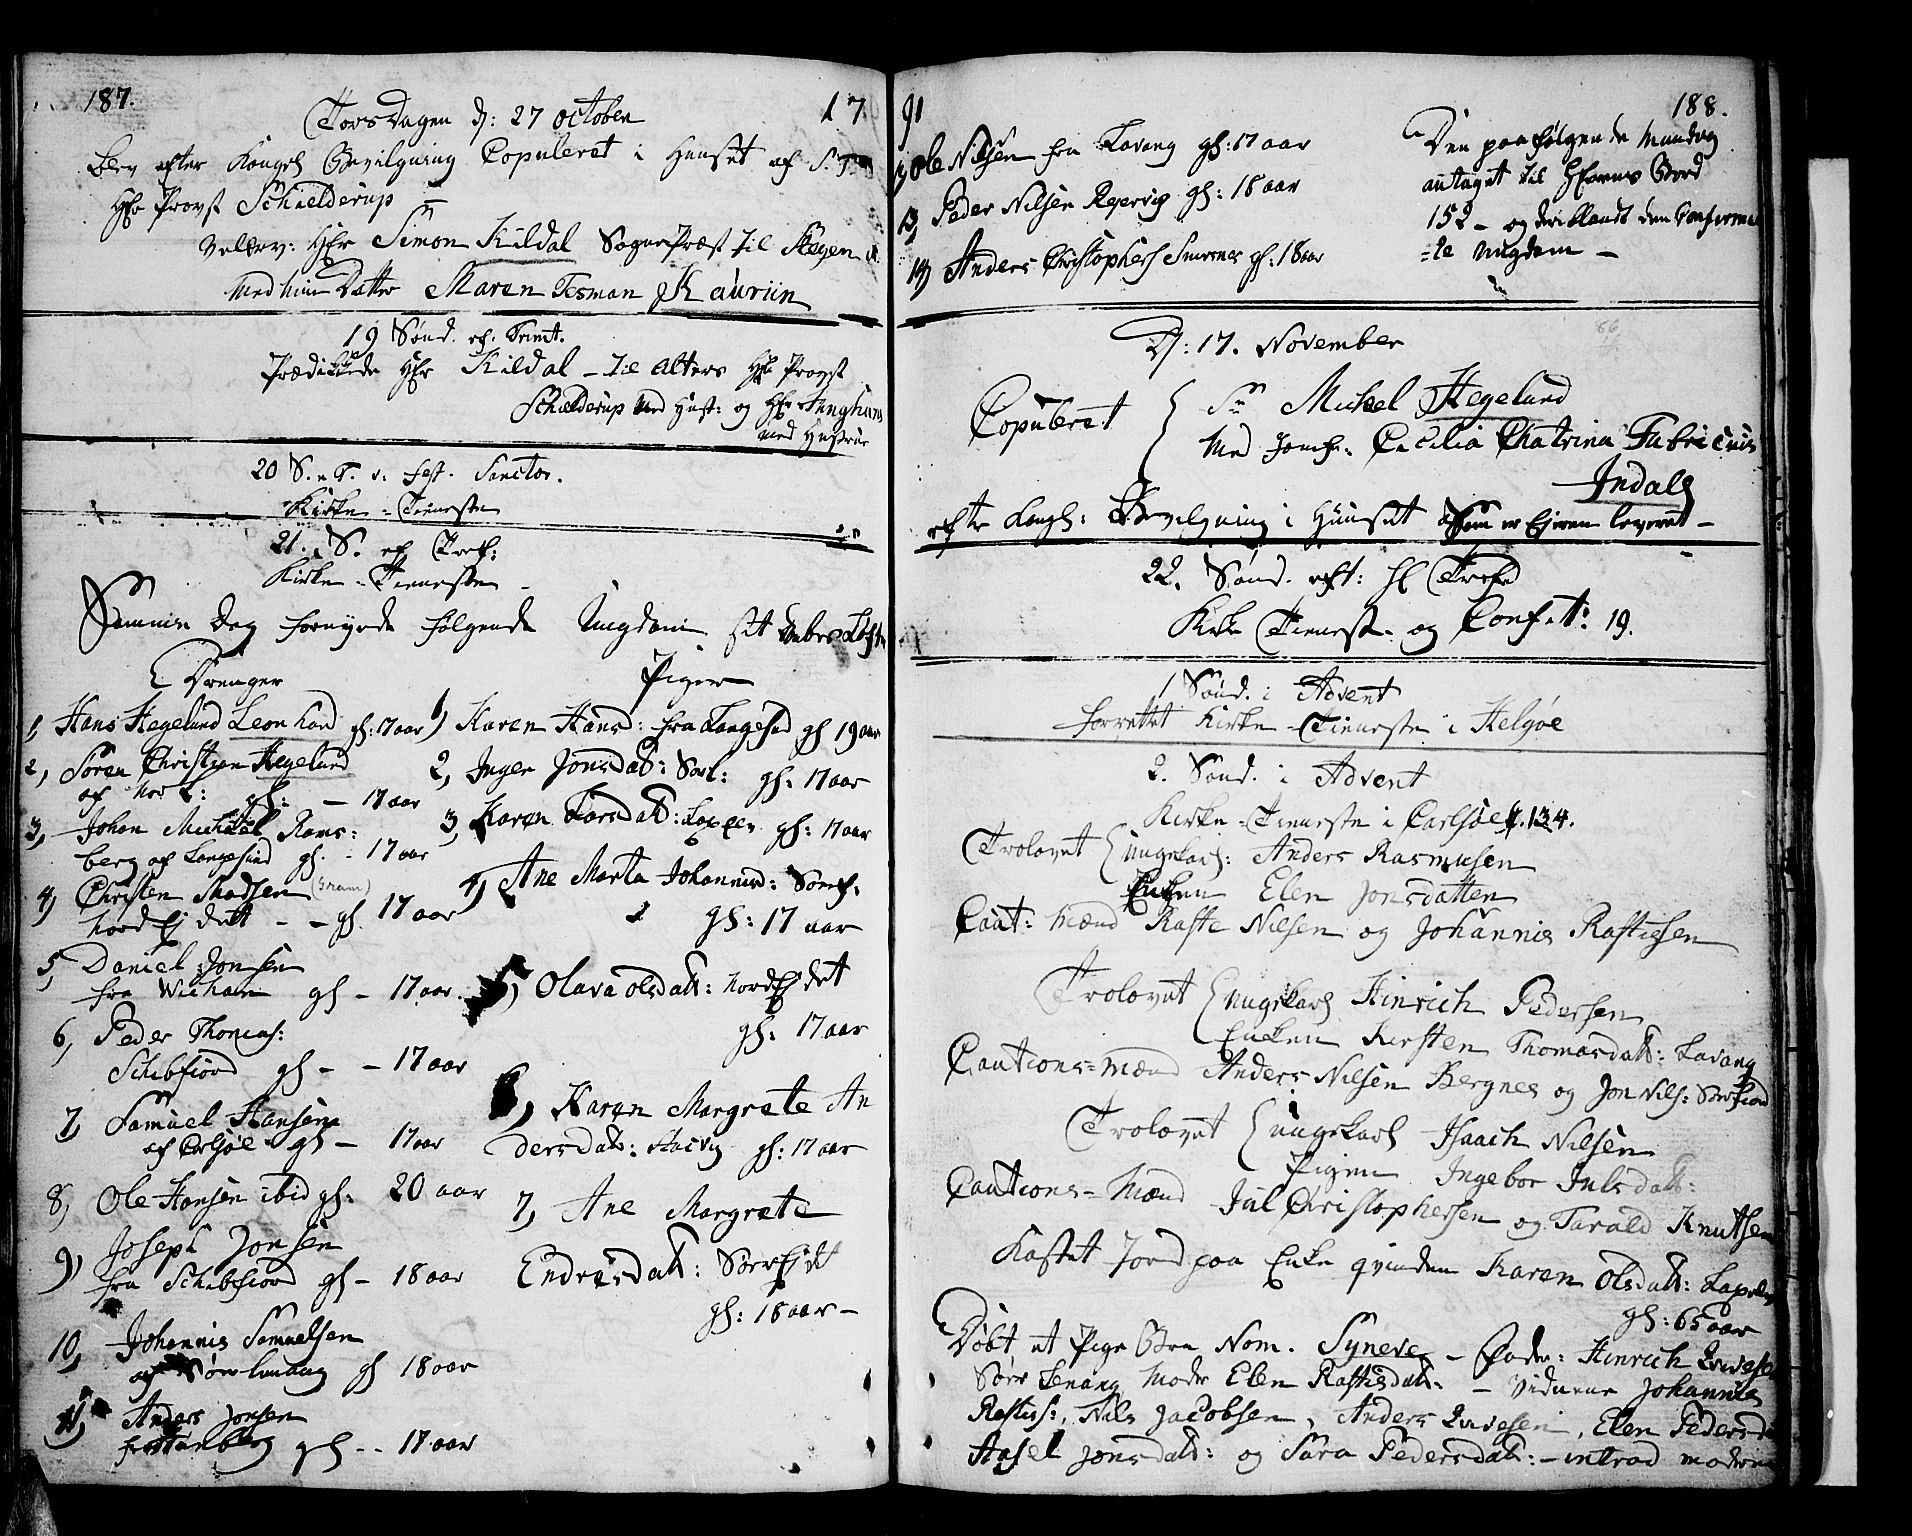 187.
17
Torsdagen d: 27 October
Blev efter Kongel Bevilgning Copuleret i Huuset af S:
Hr Provst Schielderup
Velærv: Hr Simon Kildal SognePræst til Stegen
Med hans Datter Maren Tesman Kauriin
19 Sønd. ef. Trinit.
Prædikede Hr Kildal - til Alters Hr Provst
Schielderup Med Hust: og Hr Junghans
Med Hustrue
20 S. e T. v. fest. Sanctor.
Kirke-Tieneste
21. S. ef Tref:
Kirke-Tieneste -
Samme Dag fornyede følgende Ungdom sit Daabes Løfte
Drenger
1, Hans Hegelund Leonhard gl: 17 aar
2, Søren Christian Hegelund
af Nord L: gl: - 17 aar
3, Johan Michael Rams:
berg af Langesund gl. - 17 aar
4, Christen Madsen (Gram)
Nord Ej det - - gl. 17 aar
5, Daniel Jonsen
fra Wichan gl - 17 aar.
6, Peder Thomas:
Schibfiord gl - - 17 aar
7, Samuel Hansen
af Carlsøe gl - 17 aar
8, Ole Hansen ibid gl: 20 aar
9, Joseph Jonsen
fra Schibfiord gl - 18 aar
10, Johannis Samuelsen
af Sørlenang gl 18 aar
11, Anders Jonsen
fra Hanberg gl - - 17 aar
Piger
1, Karen Hansd: fra Langesund gl 19 aar
2, Inger Jonsdat: Sorl: gl: 17 aar
3, Karen Larsdat: Loppen gl: 17 aar
4, Ane Marta Johannisd: Sørf:
gl: 17 aar
5, Olava Olsdatt: Nord Ej det
gl: 17 aar
6, Karen Margrete An
dersdatt: gl: 17 aar
7, Ane Margrete
Endresdatt: Sør Ej det
gl: 18 aar -
91
188.
12, Ole Nilsen fra Lavang gl: 17 aar
13, Peder Nilsen Repervig gl: 18 aar
14, Anders Christophers Snarsnes gl: 18 aar
Den paafølgende Mandag
antaget til Hærens Bord
152 - og deriblandt den Confirme
=te Ungdom -
D: 17. November
Copuleret { Sr Mickel Hegelund
Med Jomfr: Cecilia Chatrina Fabricius
Indals
efter Kongl: Bevilgning i Huuset som er Ejeren leveret -
22. Sønd. eft: H Trefd
Kirke Tienest- og Confit: 19.
1 Sønd. i Advent
forrettet Kirke-Tieneste i Helgøe
2. Sønd. i Advent
Kirke-Tieneste i Carlsøe C. 134.
Trolovet { Ungekarl: Anders Rasmusen
Enken Elen Jonsdatten
Caut: Mænd Raste Nilsen og Johannis Rastiesen
Trolovet { Ungekarl Hinrich Pedersen
Enken Kirsten Thomasdatt: Lavang
Cautions=Mænd Anders Nilsen Bergnes og Jon Nils: Sørfiord
Trolovet { Ungekarl Isach Nilsen
Pigen Ingebor Julsdatt:
Cautions-Mænd Jul Christophersen og Tarald Knutsen
Kastet Jord paa Enke qvinden Karen Olsdatt:
gl: 65 aar
Døbt et Pige Barn Nom. Syneve - Fader: Hinrich
Sør Lenang, Moder Elen Rastiesdatt: - Vidnerne Johannis
Rasties:, Nils Jacobsen, Anders, Elen Pedersd
Hasel Jonsdatt: og Sara Pedersdatt: - introd moderen